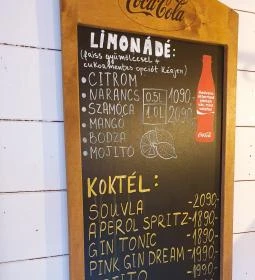 Coca-Cola
LIMONÁDÉ:
(friss gyümölccsel +
cukormentes opciót kérjen)
• CITROM
• NARANCS 0.3L 1090.-
• SZAMÓCA 1.0L 2090.-
• MANGÓ
• BODZA
• MOJITO
Coca-Cola
KOKTÉL:
SOUVLA -2090,-
APEROL SPRITZ-1890,-
GIN TONIC -1890,-
PINK GIN DREAM-1990,-